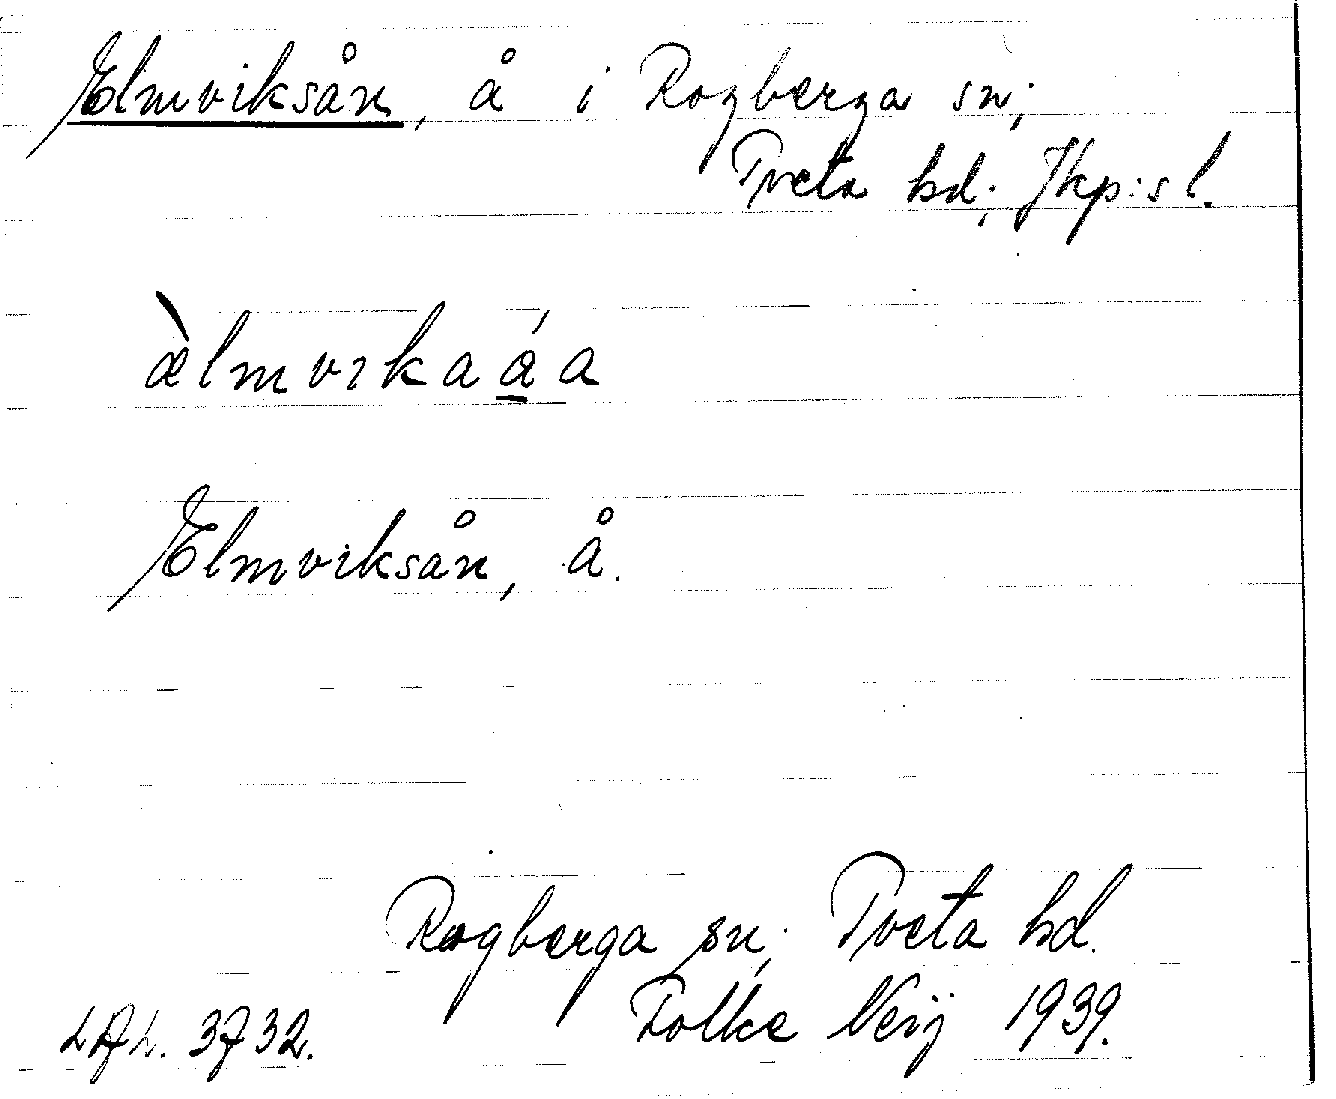 Elmviksån, å i Rogberga sn;
Tveta hd; Jkp:s l.
æ̀lmvikaá̱a
Elmviksån, å.
Rogberga sn; Tveta hd.
3732. Folke Neij 1939.